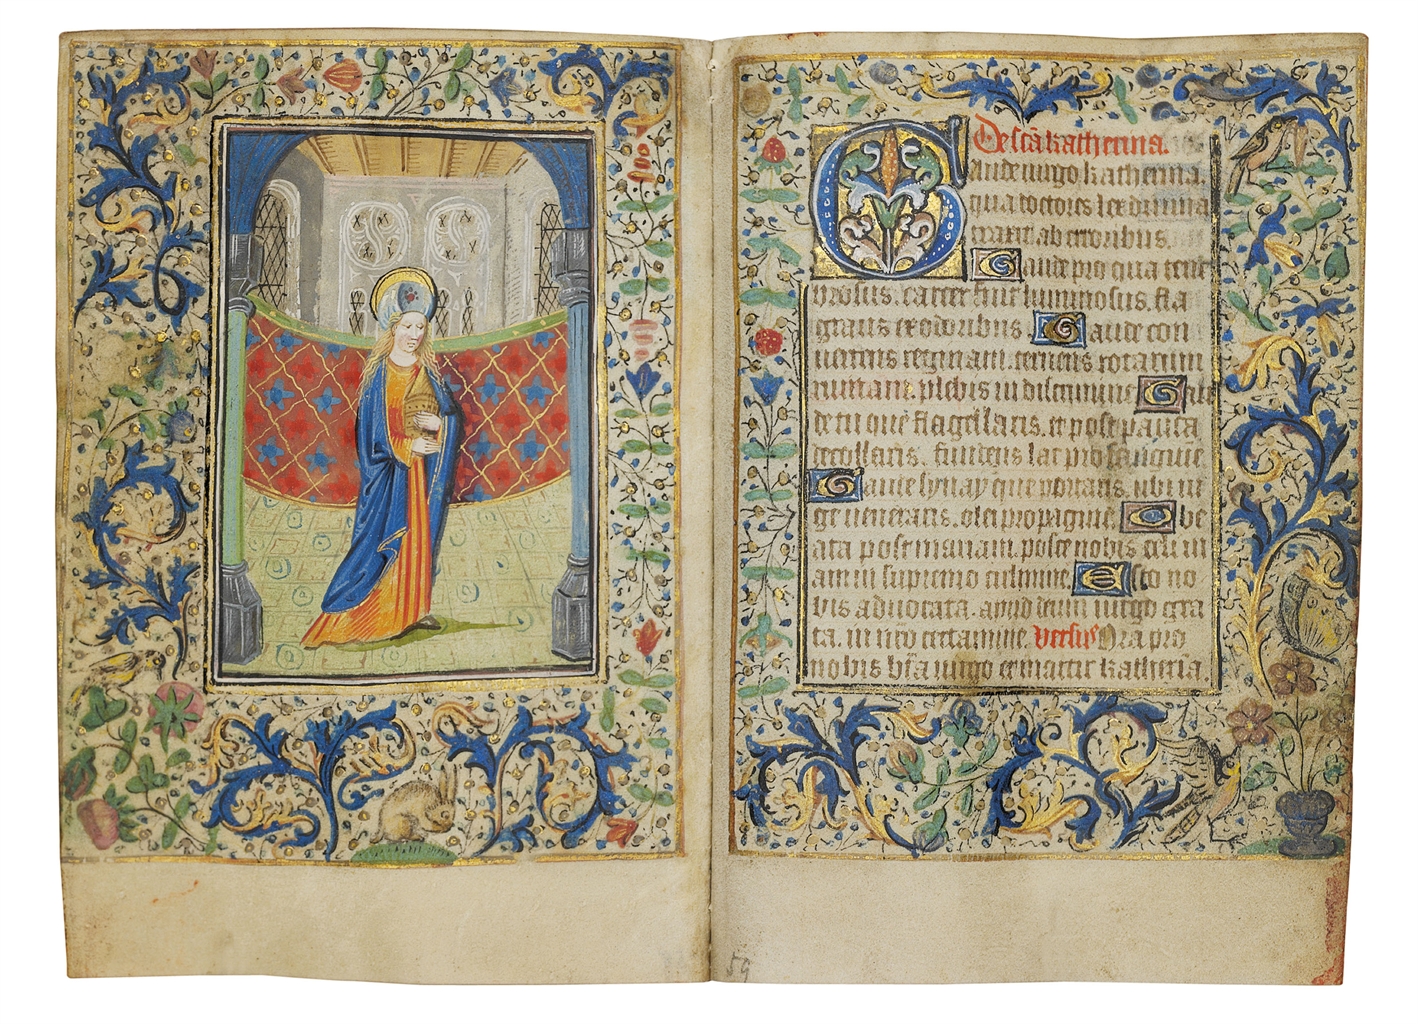 De scā katherina.
Gaude uirgo katherina.
qua doctores lex diuina
traxit ab erroribus.
Gaude pro qua tene
brosus. carcer fuit luminosus. fla
grans ex odoribus. Gaude con
uertens reginam. terens rotarum
plebis in discrimine Gau
de tu que flagellaris. et post pausa
decollaris. fundens lac pro sanguine
Gaude synay que portaris. ubi iu
ge ueneraris. olei propagine. O be
ata post mariam. posce nobis
in supremo culmine. Esto no
bis aduocata. apud deum uirgo
ta. in nr̄o certamine. Versus Ora pro
nobis bt̄a uirgo et martir katherīa.
59